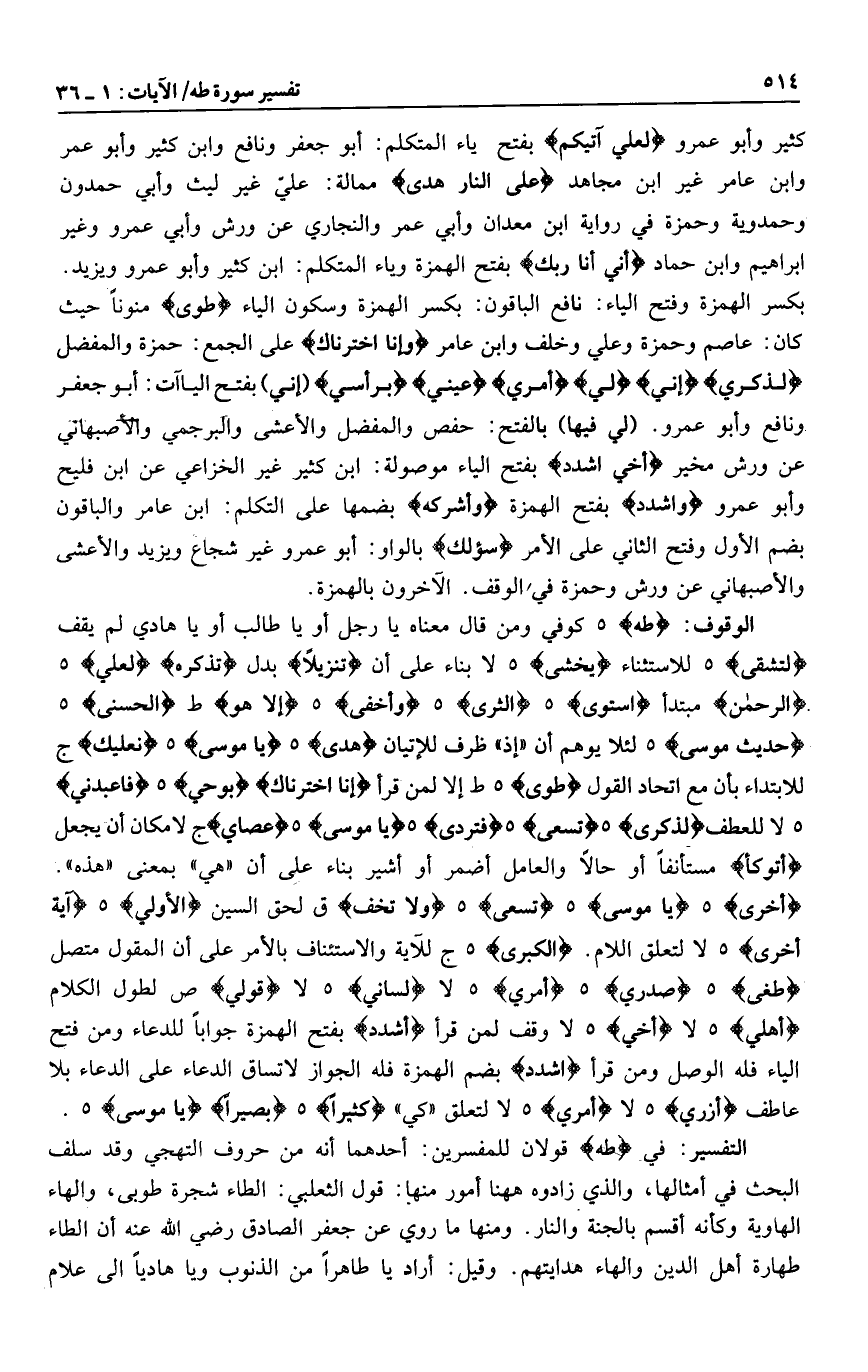 ٥١٤
تفسير سورة طه/ الآيات: ١ ـ ٣٦
كثير وأبو عمرو ﴿لعلي آتيكم﴾ بفتح ياء المتكلم: أبو جعفر ونافع وابن كثير وأبو عمر
وابن عامر غير ابن مجاهد ﴿على النار هدى﴾ ممالة: عليّ غير ليث وأبي حمدون
وحمدوية وحمزة في رواية ابن معدان وأبي عمر والنجاري عن ورش وأبي عمرو وغير
ابراهيم وابن حماد ﴿أني أنا ربك﴾ بفتح الهمزة وياء المتكلم: ابن كثير وأبو عمرو ويزيد.
بكسر الهمزة وفتح الياء: نافع الباقون: بكسر الهمزة وسكون الياء ﴿طوى﴾ منوناً حيث
كان: عاصم وحمزة وعلي وخلف وابن عامر ﴿وإنا اخترناك﴾ على الجمع: حمزة والمفضل
﴿لذكري﴾ ﴿إني﴾ ﴿لي﴾ ﴿أمري﴾ ﴿عيني﴾ ﴿برأسي﴾ (إني) بفتح الياآت: أبو جعفر
ونافع وأبو عمرو. (لي فيها) بالفتح: حفص والمفضل والأعشى والبرجمي والأصبهاني
عن ورش مخير ﴿أخي اشدد﴾ بفتح الياء موصولة: ابن كثير غير الخزاعي عن ابن فليح
وأبو عمرو ﴿واشدد﴾ بفتح الهمزة ﴿وأشركه﴾ بضمها على التكلم: ابن عامر والباقون
بضم الأول وفتح الثاني على الأمر ﴿سؤلك﴾ بالواو: أبو عمرو غير شجاع ويزيد والأعشى
والأصبهاني عن ورش وحمزة في الوقف. الآخرون بالهمزة.
الوقوف: ﴿طه﴾ ٥ كوفي ومن قال معناه يا رجل أو يا طالب أو يا هادي لم يقف
﴿لتشقى﴾ ٥ للاستثناء ﴿يخشى﴾ ٥ لا بناء على أن ﴿تنزيلاً﴾ بدل ﴿تذكره﴾ ﴿لعلي﴾ ٥
﴿الرحمٰن﴾ مبتدأ ﴿استوى﴾ ٥ ﴿الثرى﴾ ٥ ﴿وأخفى﴾ ٥ ﴿إلا هو﴾ ط ﴿الحسنى﴾ ٥
﴿حديث موسى﴾ ٥ لئلا يوهم أن «إذ» ظرف للإتيان ﴿هدى﴾ ٥ ﴿يا موسى﴾ ٥ ﴿نعليك﴾ ج
للابتداء بأن مع اتحاد القول ﴿طوى﴾ ٥ ط إلا لمن قرأ ﴿إنا اخترناك﴾ ﴿يوحي﴾ ٥ ﴿فاعبدني﴾
٥ لا للعطف﴿لذكرى﴾ ٥﴿تسعى﴾ ٥﴿فتردى﴾ ٥﴿يا موسى﴾ ٥﴿عصاي﴾ج لامكان أن يجعل
﴿أتوكأ﴾ مستأنفاً أو حالاً والعامل أضمر أو أشير بناء على أن «هي» بمعنى «هذه».
﴿أخرى﴾ ٥ ﴿يا موسى﴾ ٥ ﴿تسعى﴾ ٥ ﴿ولا تخف﴾ ق لحق السين ﴿الأولي﴾ ٥ ﴿آية
أخرى﴾ ٥ لا لتعلق اللام. ﴿الكبرى﴾ ٥ ج للآية والاستئناف بالأمر على أن المقول متصل
﴿طغى﴾ ٥ ﴿صدري﴾ ٥ ﴿أمري﴾ ٥ لا ﴿لساني﴾ ٥ لا ﴿قولي﴾ ص لطول الكلام
﴿أهلي﴾ ٥ لا ﴿أخي﴾ ٥ لا وقف لمن قرأ ﴿أشدد﴾ بفتح الهمزة جواباً للدعاء ومن فتح
الياء فله الوصل ومن قرأ ﴿اشدد﴾ بضم الهمزة فله الجواز لاتساق الدعاء على الدعاء بلا
عاطف ﴿أزري﴾ ٥ لا ﴿أمري﴾ ٥ لا لتعلق «كي» ﴿كثيراً﴾ ٥ ﴿بصيراً﴾ ﴿يا موسى﴾ ٥ .
التفسير: في ﴿طه﴾ قولان للمفسرين: أحدهما أنه من حروف التهجي وقد سلف
البحث في أمثالها، والذي زادوه ههنا أمور منها: قول الثعلبي: الطاء شجرة طوبى، والهاء
الهاوية وكأنه أقسم بالجنة والنار. ومنها ما روي عن جعفر الصادق رضي الله عنه أن الطاء
طهارة أهل الدين والهاء هدايتهم. وقيل: أراد يا طاهراً من الذنوب ويا هادياً الى علام